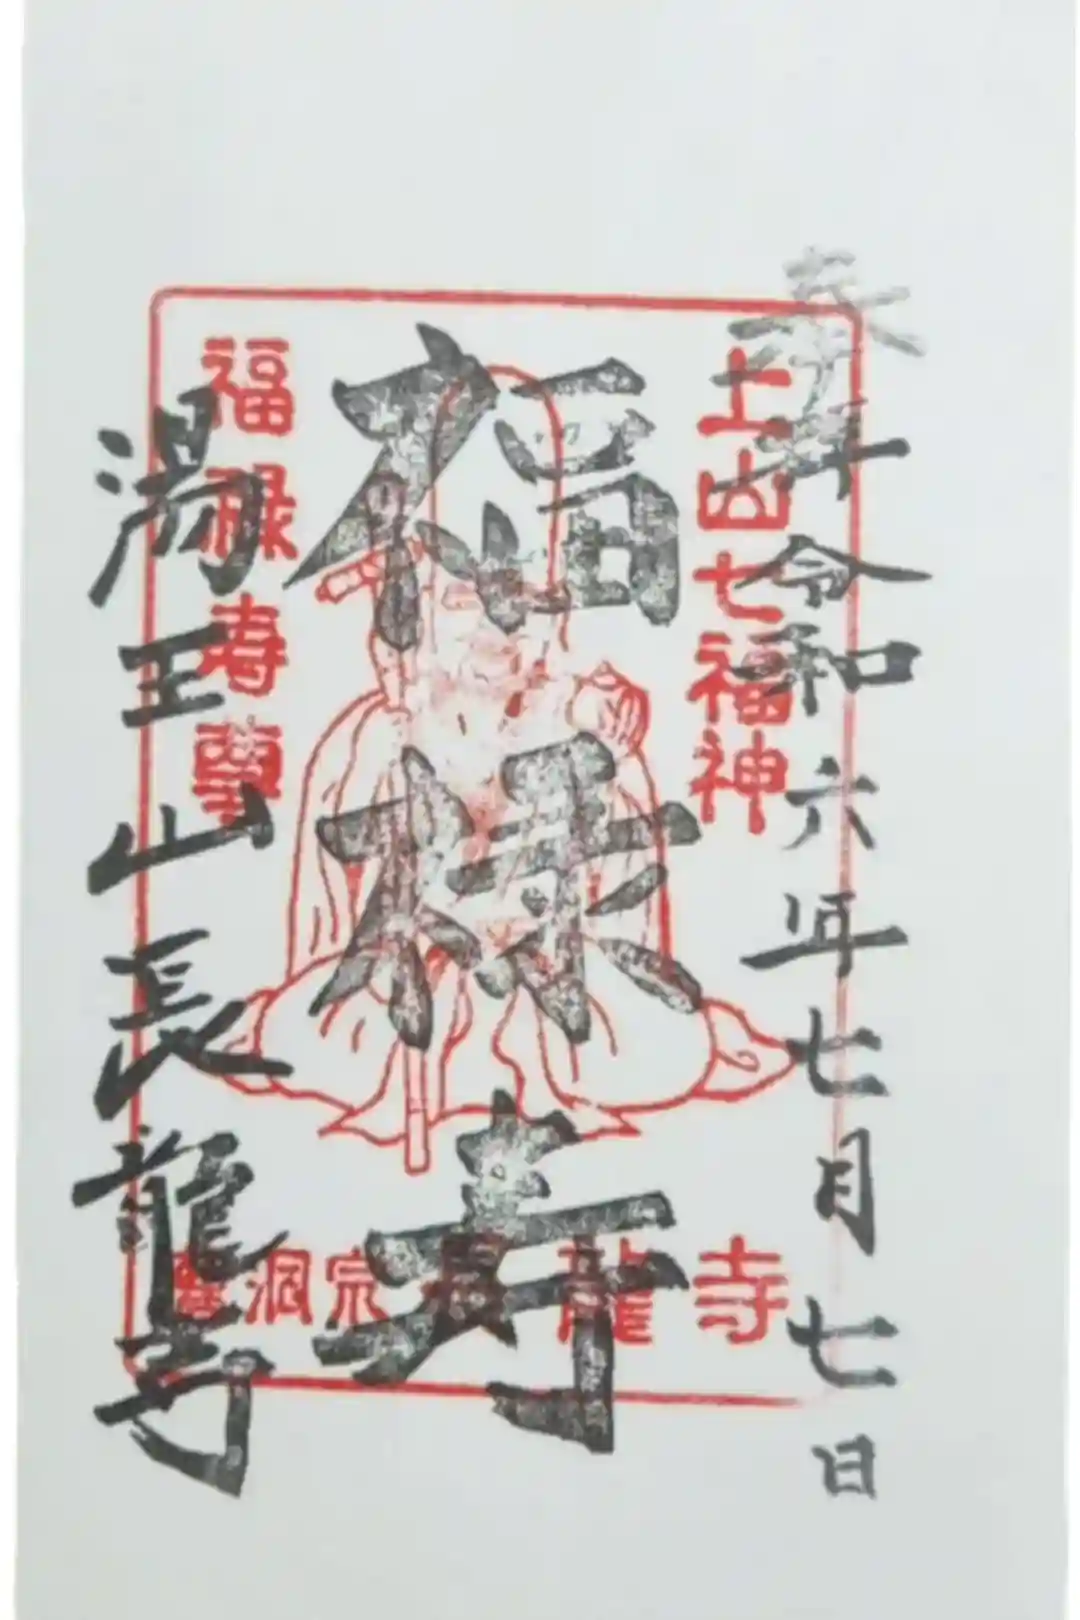 奉拝 令和六年七月七日
上山七福神
福禄寿
福禄寿尊
湯王山長龍寺
曹洞宗 長龍寺